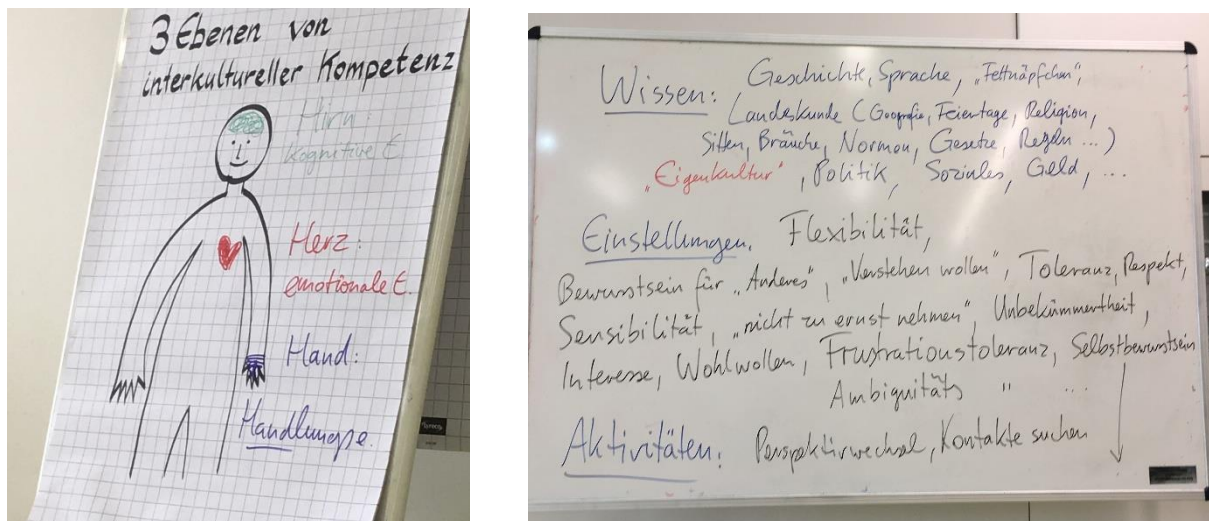 3 Ebenen von
interkultureller Kompetenz
Hirn
kognitive E.
Herz:
emotionale E.
Hand:
Handlungse.
Wissen: Geschichte, Sprache, „Fettnäpfchen",
Landeskunde (Geografie, Feiertage, Religion,
Sitten, Bräuche, Normen, Gesetze, Regeln ...)
„Eigenkultur", Politik, Soziales, Geld, ...
Einstellungen. Flexibilität,
Bewusstsein für „Anderes", „Verstehen wollen", Toleranz, Respekt,
Sensibilität, „nicht zu ernst nehmen", Unbekümmertheit,
Interesse, Wohlwollen, Frustrationstoleranz, Selbstbewusstsein
Ambiguitäts " ...
Aktivitäten: Perspektivwechsel, Kontakte suchen